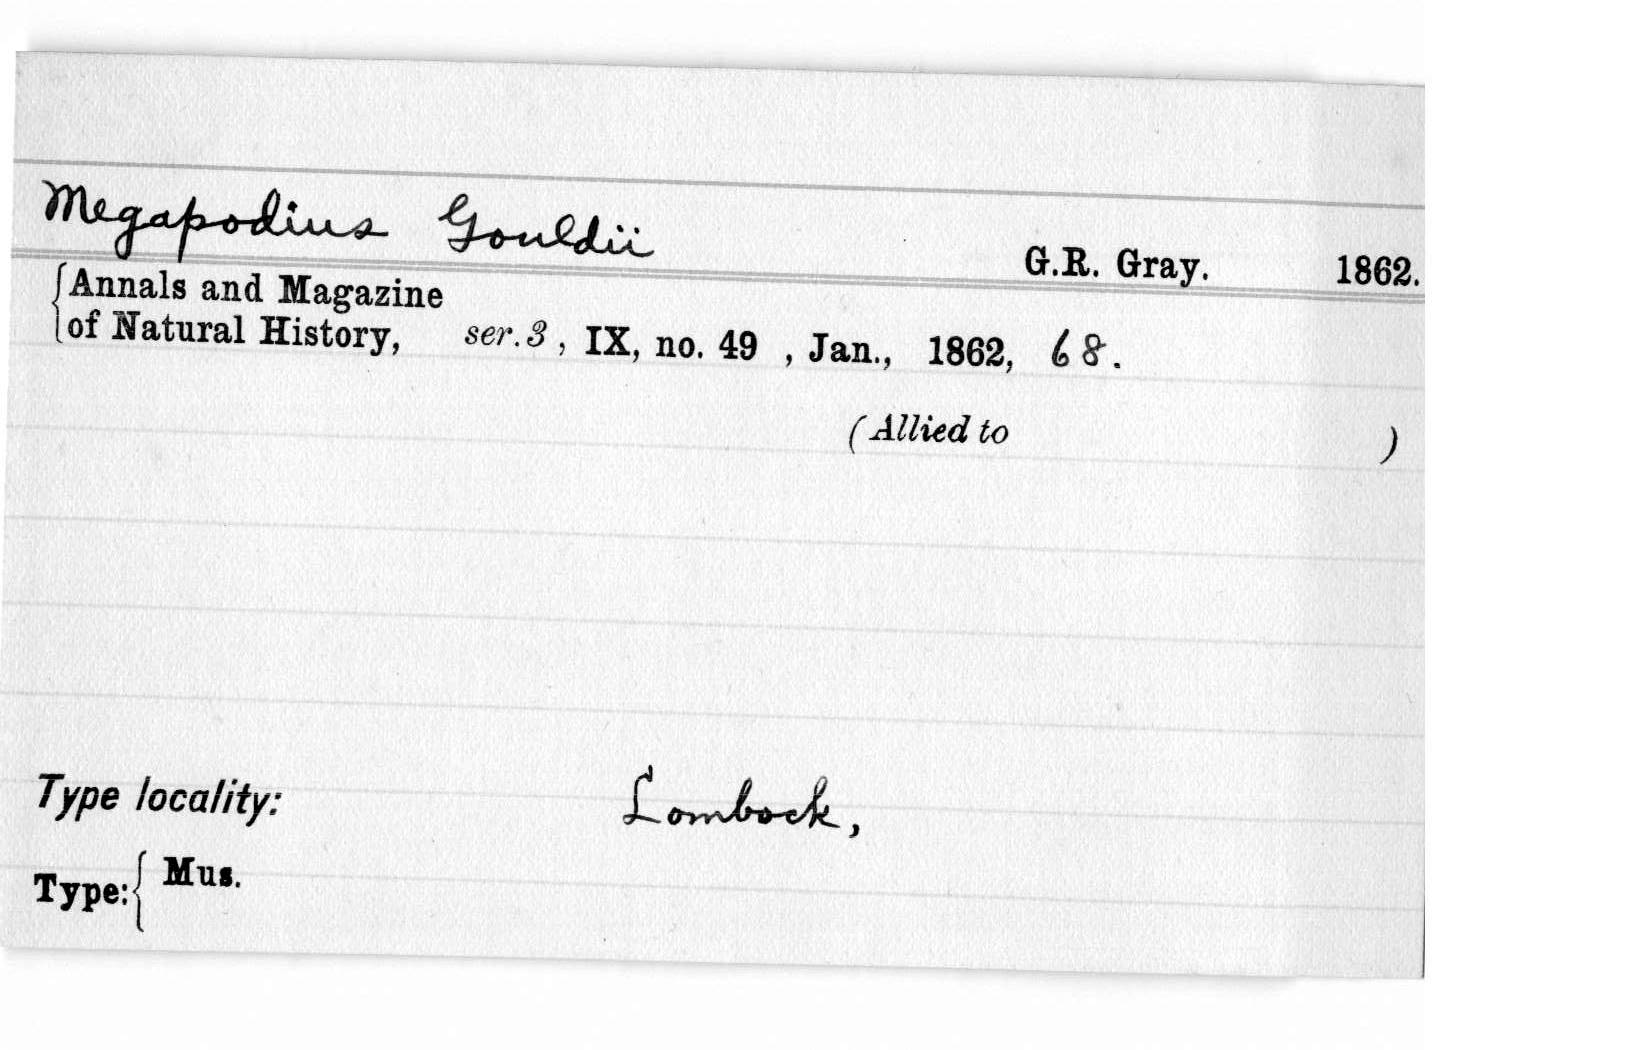 Megapodius Gouldii G.R. Gray. 1862.
{Annals and Magazine
of Natural History, ser. 3, IX, no. 49, Jan., 1862, 68.
(Allied to )
Type locality: Lombock,
Type:{ Mus.